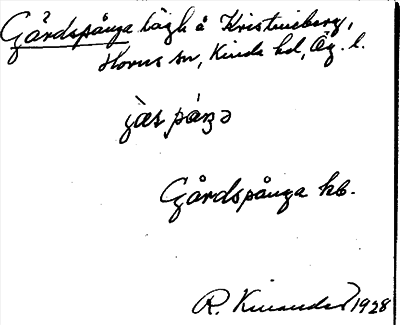 Gårdspånga lägh å Kristineberg,
Horns sn, Kinda hd, Ög. l.
gås påŋə
Gårdspånga kb.
R. Kinander 1928